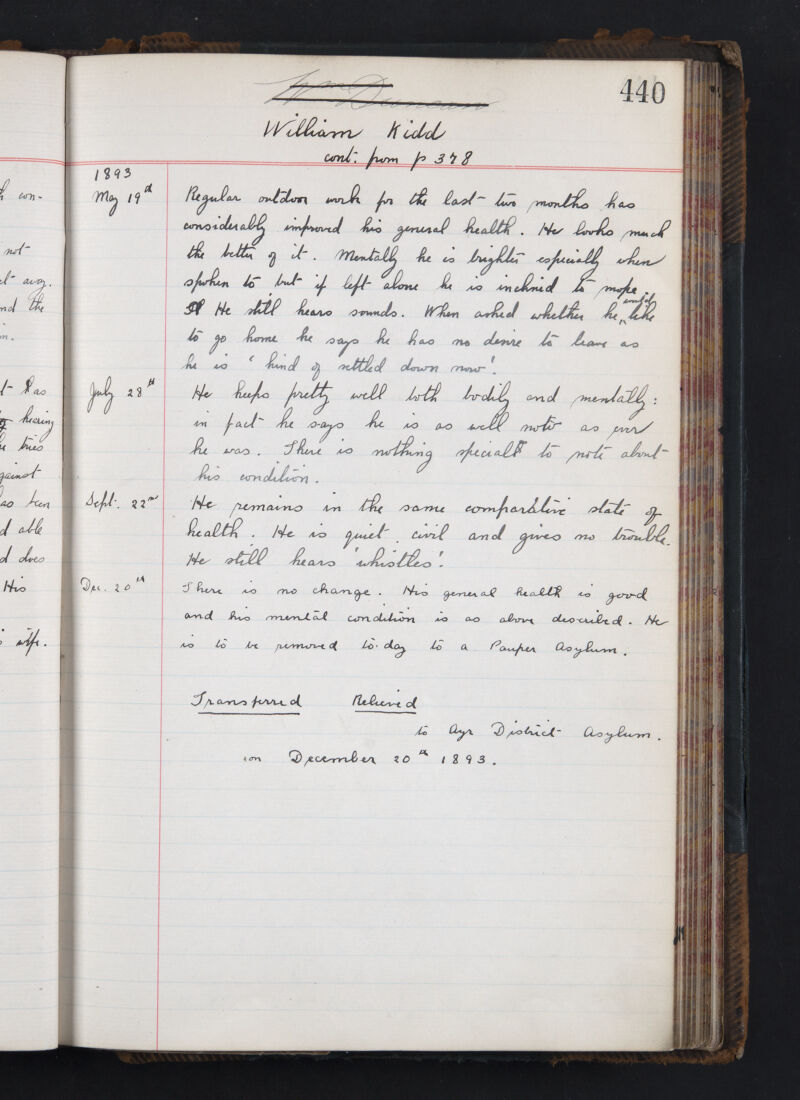 440
Wm Duncan
William Kidd
cont. from p 378
1893
May 19th Regular outdoor work for the last two months has
considerably improved his general health. He looks much
the better of it. Mentally he is brighter especially when
spoken to but if left alone he is inclined to mope.
He still hears sounds. When asked whether he would like
to go home he says he has no desire to leave as
he is 'kind of settled down now'.
July 28th He keeps pretty well both bodily and mentally:
in fact he says he is as well now as ever
he was. There is nothing special to note about
his condition.
Sept. 22nd He remains in the same comparative state of
health. He is quiet, civil and gives no trouble.
He still hears 'whistles'.
Dec. 20th There is no change. His general health is good
and his mental condition is as above described. He
is to be removed to-day to a Pauper Asylum.
Transferred Relieved
to Ayr District Asylum.
on December 20th 1893.
h con-
not
nd the
t has
hearing
he tries
gainst
as been
d able
d does
His
wife.